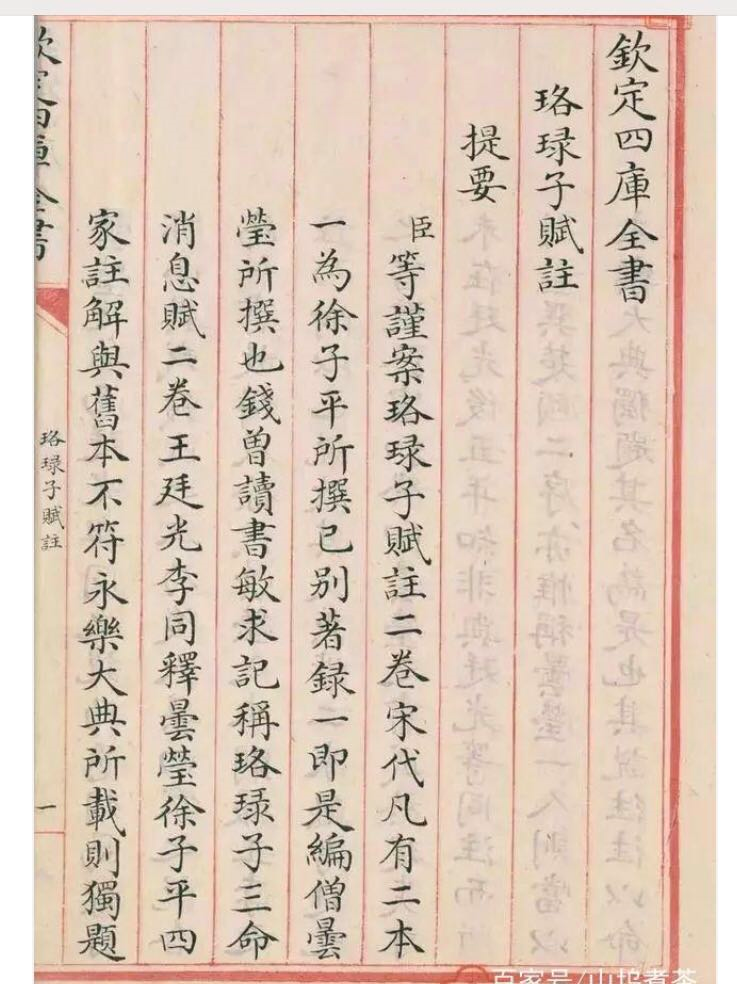 欽定四庫全書
珞琭子賦註
提要
臣等謹案珞琭子賦註二卷宋代凡有二本
一為徐子平所撰已别著録一即是編僧曇
瑩所撰也錢曾讀書敏求記稱珞琭子三命
消息賦二卷王廷光李同釋曇瑩徐子平四
家註解與舊本不符永樂大典所載則獨題
欽定四庫全書
珞琭子賦註
一
百家号/山坞煮茶